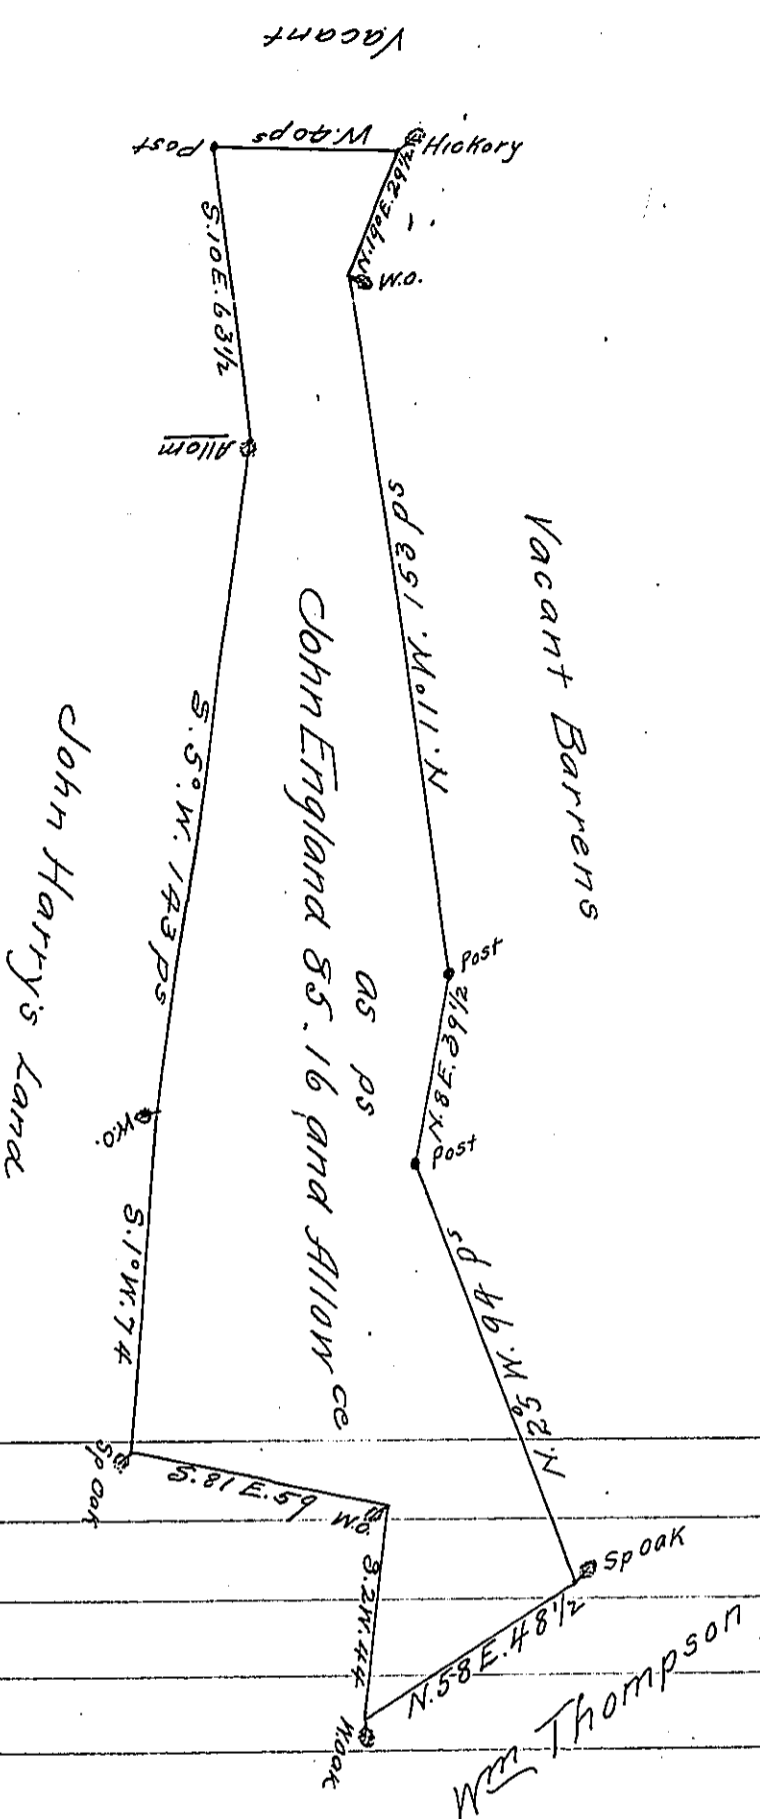 Vacant
Post
W. 40 ps
Hickory
N. 19° E. 29 1/2
W.O.
S. 10 E. 63 1/2
Allom
N. 11° W. 153 ps
Vacant Barrens
as ps
John England 85.16 and Allow ce
S. 5° W. 143 ps
John Harry's Land
Post
N. 8 E. 39 1/2
Post
W.O.
S. 1° W. 74
N. 25° W. 94 ps
Sp Oak
S. 81 E. 59
W.O.
S. 2 W. 44
Sp oak
N. 58 E. 48 1/2
W oak
Wm Thompson